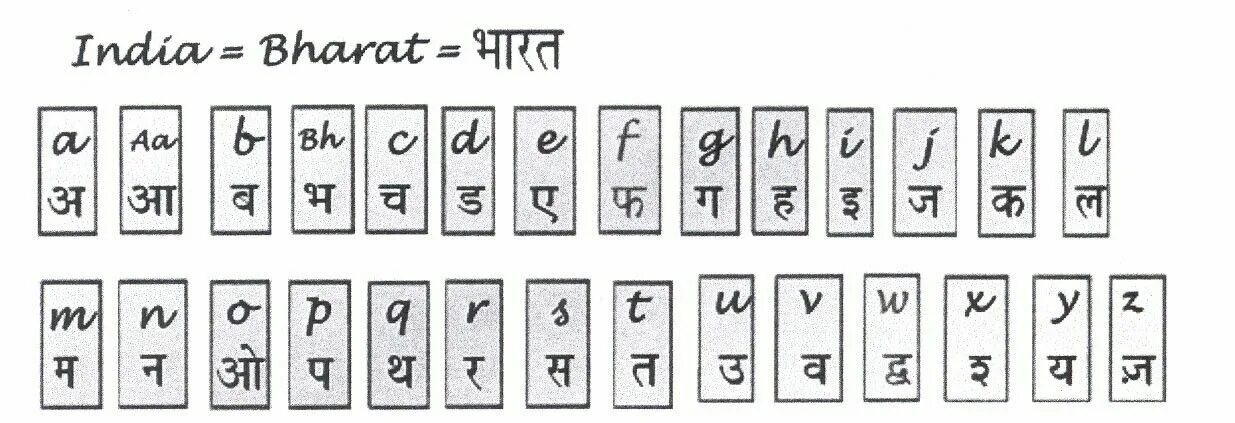 India = Bharat = भारत
a Aa b Bh c d e f g h i j k l
अ आ ब भ च ड ए फ ग ह इ ज क ल
m n o p q r s t u v w x y z
म न ओ प थ र स त उ व द्व श य ज़